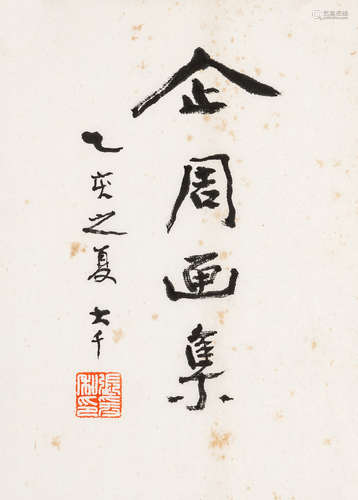 企周画集
乙亥之夏 大千